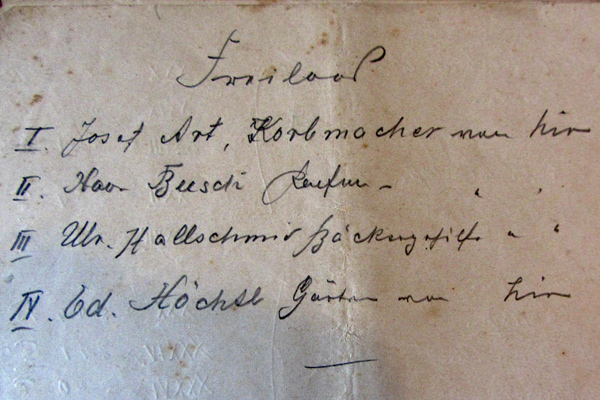 Freiloos
I. Josef Art, Korbmacher von hier
II. Xav. Beesch Kaufm. " "
III Ulr. Hallschmid Bäckergehilfe " "
IV. Ed. Höchtl Gärtner von hier